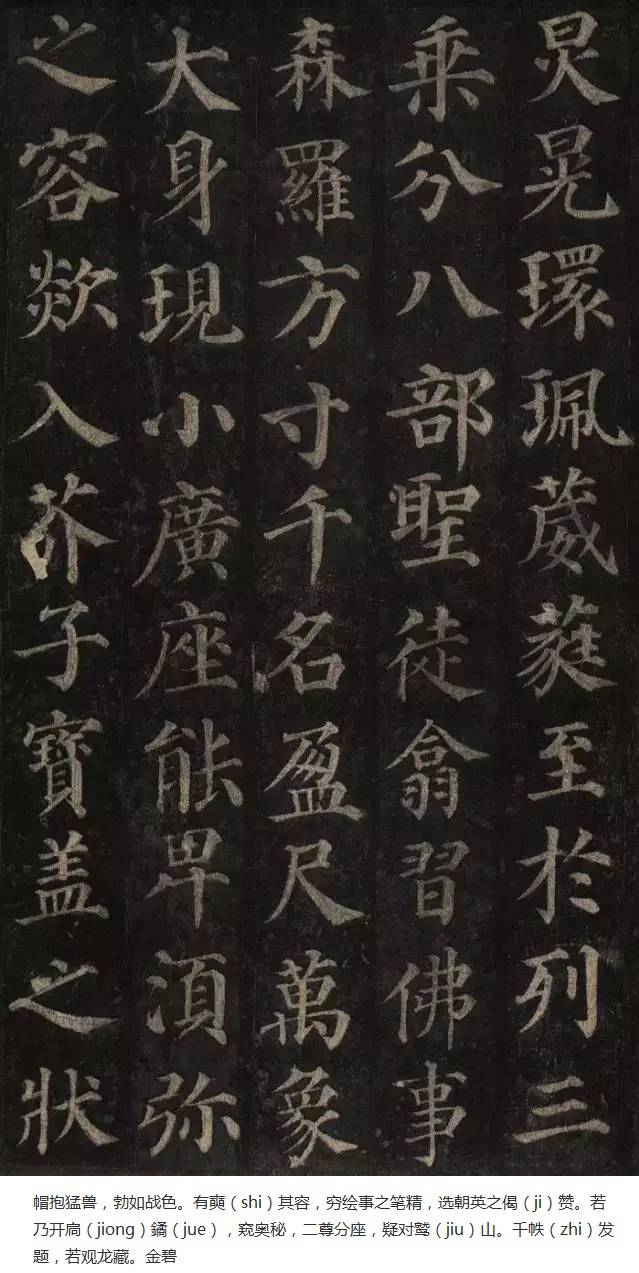 炅晃環珮葳蕤至於列三
乘分八部聖徒翕習佛事
森羅方寸千名盈尺萬象
大身現小廣座能卑須弥
之容欻入芥子寶盖之狀
帽抱猛兽，勃如战色。有奭（shi）其容，穷绘事之笔精，选朝英之偈（ji）赞。若
乃开扃（jiong）鐍（jue），窥奥秘，二尊分座，疑对鹫（jiu）山。千帙（zhi）发
题，若观龙藏。金碧